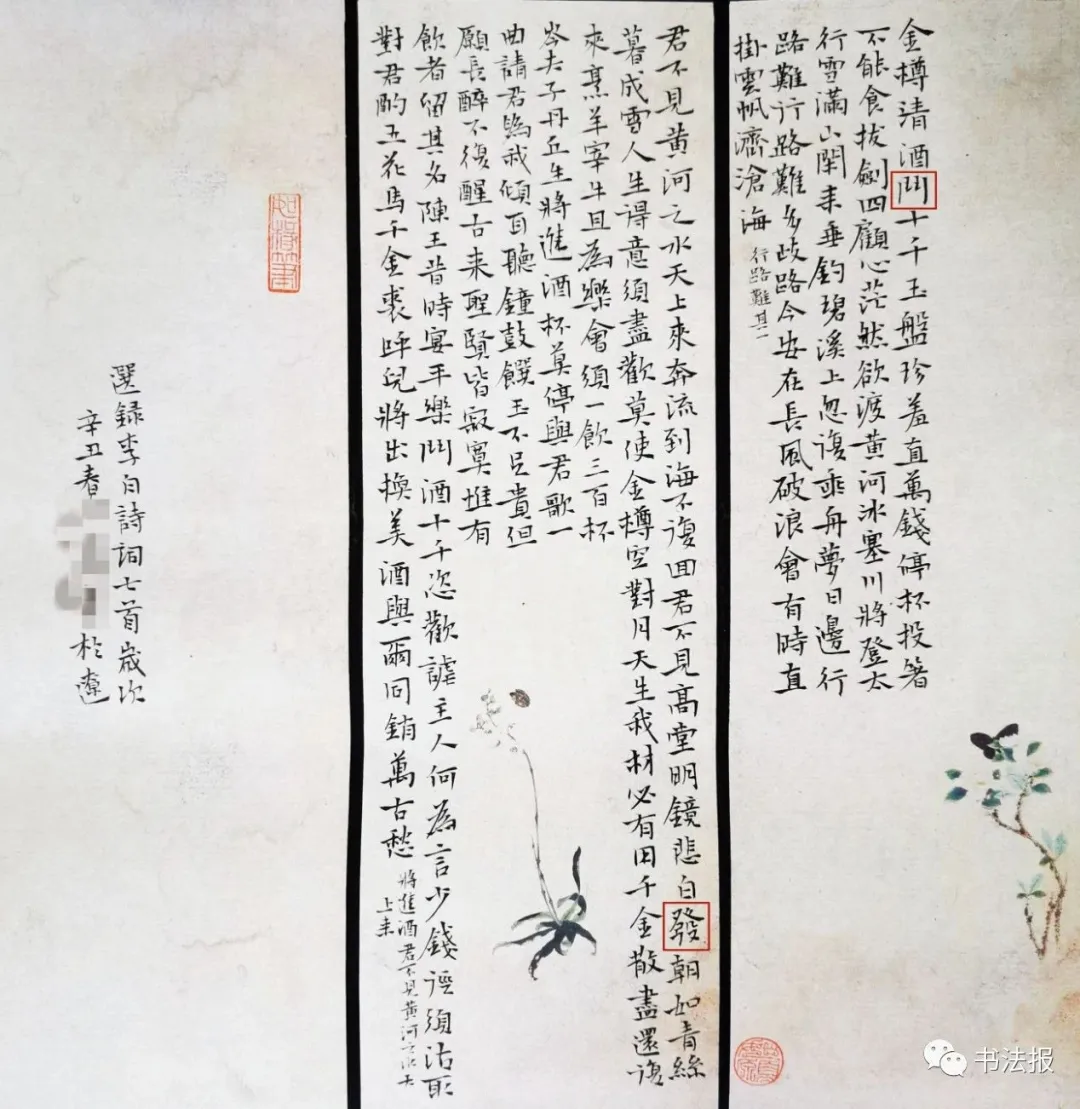 金樽清酒鬥十千玉盤珍羞直萬錢停杯投箸
不能食拔劍四顧心茫然欲渡黃河冰塞川將登太
行雪滿山閑来垂釣碧溪上忽復乘舟夢日邊行
路難行路難多歧路今安在長風破浪會有時直
掛雲帆濟滄海
行路難其一
君不見黃河之水天上來奔流到海不復回君不見高堂明鏡悲白發朝如青絲
暮成雪人生得意須盡歡莫使金樽空對月天生我材必有用千金散盡還復
來烹羊宰牛且為樂會須一飲三百杯
岑夫子丹丘生將進酒杯莫停與君歌一
曲請君為我傾耳聽鐘鼓饌玉不足貴但
願長醉不復醒古来聖賢皆寂寞惟有
飲者留其名陳王昔時宴平樂鬥酒十千恣歡謔主人何為言少錢徑須沽取
對君酌五花馬千金裘呼兒將出換美酒與爾同銷萬古愁
將進酒君不見黃河之水天
上来
選録李白詩詞七首歲次
辛丑春
於遼
书法报